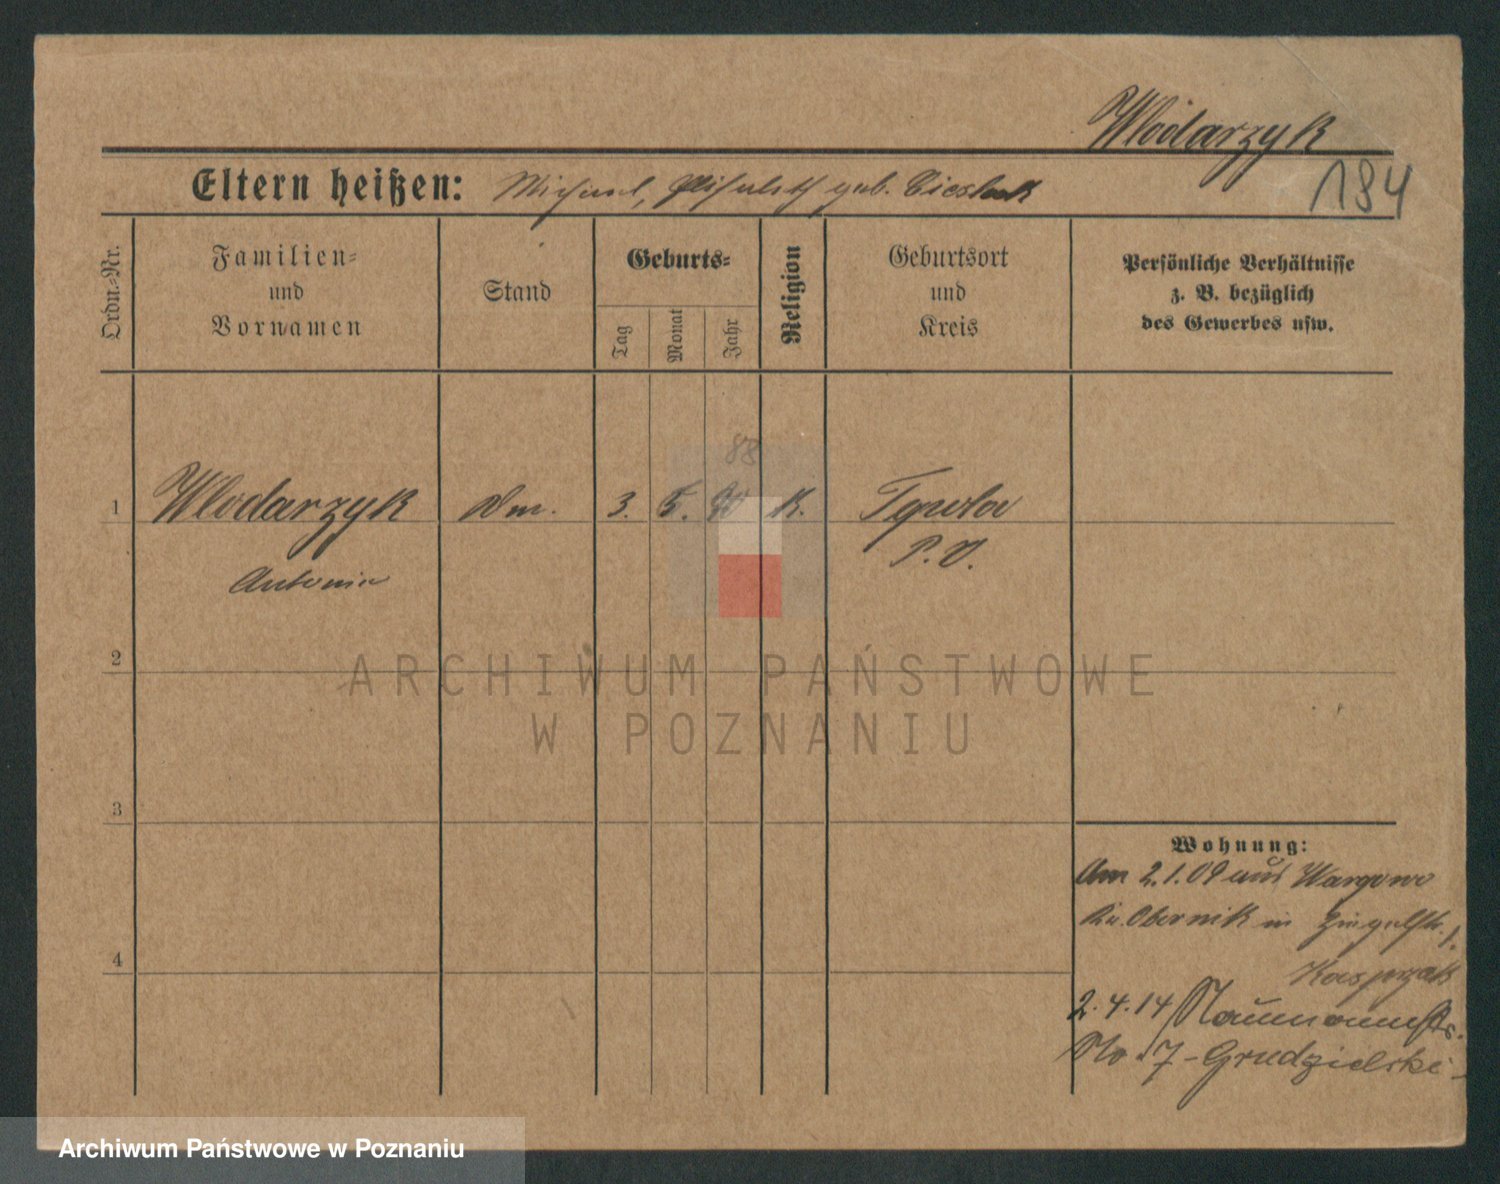 Włodarzyk
184
Eltern heißen: Michael, geb.
Ordn.-Nr.
Familien-
und
Vornamen
Stand
Geburts-
Tag
Monat
Jahr
Religion
Geburtsort
und
Kreis
Persönliche Verhältnisse
z. B. bezüglich
des Gewerbes usw.
88
1 Wlodarzyk 3. 5. 90 K.
P. O.
Antonie
2
3
4
Wohnung:
Am 2.1.09 aus Wargowo
Kr. Obornik in Ziegelstr. 1.
Kasprzak
2.4.14 Naumannstr.
No 7 - Grudzielski -
ARCHIWUM PAŃSTWOWE
W POZNANIU
Archiwum Państwowe w Poznaniu